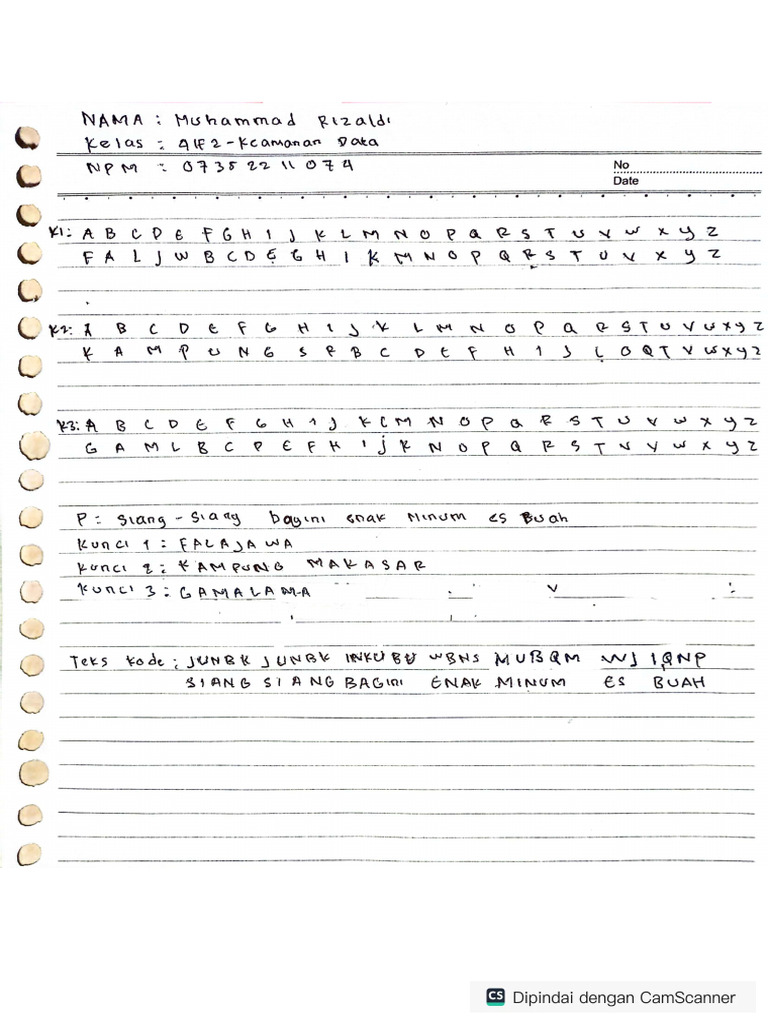 NAMA : Muhammad Rizaldi
Kelas : 4IF2-Keamanan Data
NPM : 07352211074
No
Date
K1: A B C D E F G H I J K L M N O P Q R S T U V W X Y Z
F A L J W B C D E G H I K M N O P Q R S T U V X Y Z
K2: A B C D E F G H I J K L M N O P Q R S T U V W X Y Z
K A M P U N G S R B C D E F H I J L O Q T V W X Y Z
K3: A B C D E F G H I J K L M N O P Q R S T U V W X Y Z
G A M L B C D E F H I J K N O P Q R S T U V W X Y Z
P = Siang - Siang bagini enak Minum es Buah
Kunci 1 : FALAJAWA
Kunci 2 : KAMPUNG MAKASAR
Kunci 3 : GAMALAMA
Teks Kode : JUNBK JUNBK INKUBU WBNS MUBQM WJ IQNP
SIANG SIANG BAGINI ENAK MINUM ES BUAH
CS Dipindai dengan CamScanner